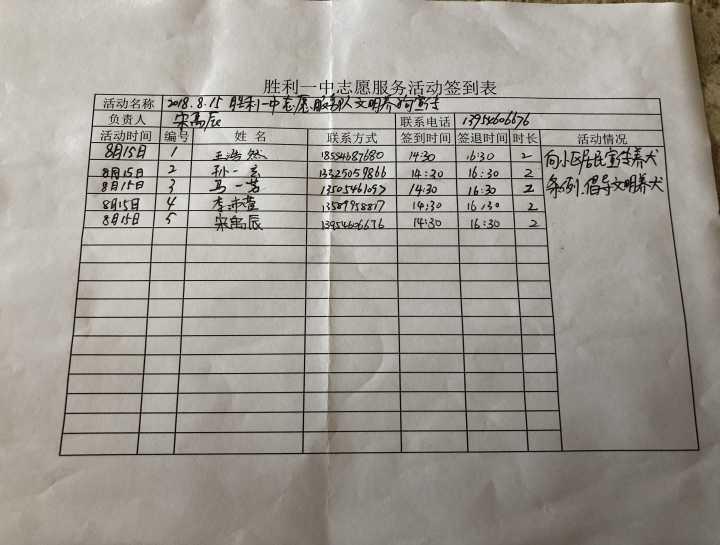 胜利一中志愿服务活动签到表
活动名称 2018.8.15 胜利一中志愿服务队文明养狗宣传
负责人 宋禹辰 联系电话 13954606676
活动时间 编号 姓名 联系方式 签到时间 签退时间 时长 活动情况
8月15日 1 王浩然 18554687680 14:30 16:30 2 向小区居民宣传养犬
8月15日 2 孙一 13325059866 14:30 16:30 2
8月15日 3 马一 13505461097 14:30 16:30 2 条例,倡导文明养犬
8月15日 4 李 13589958817 14:30 16:30 2
8月15日 5 宋禹辰 13954606676 14:30 16:30 2